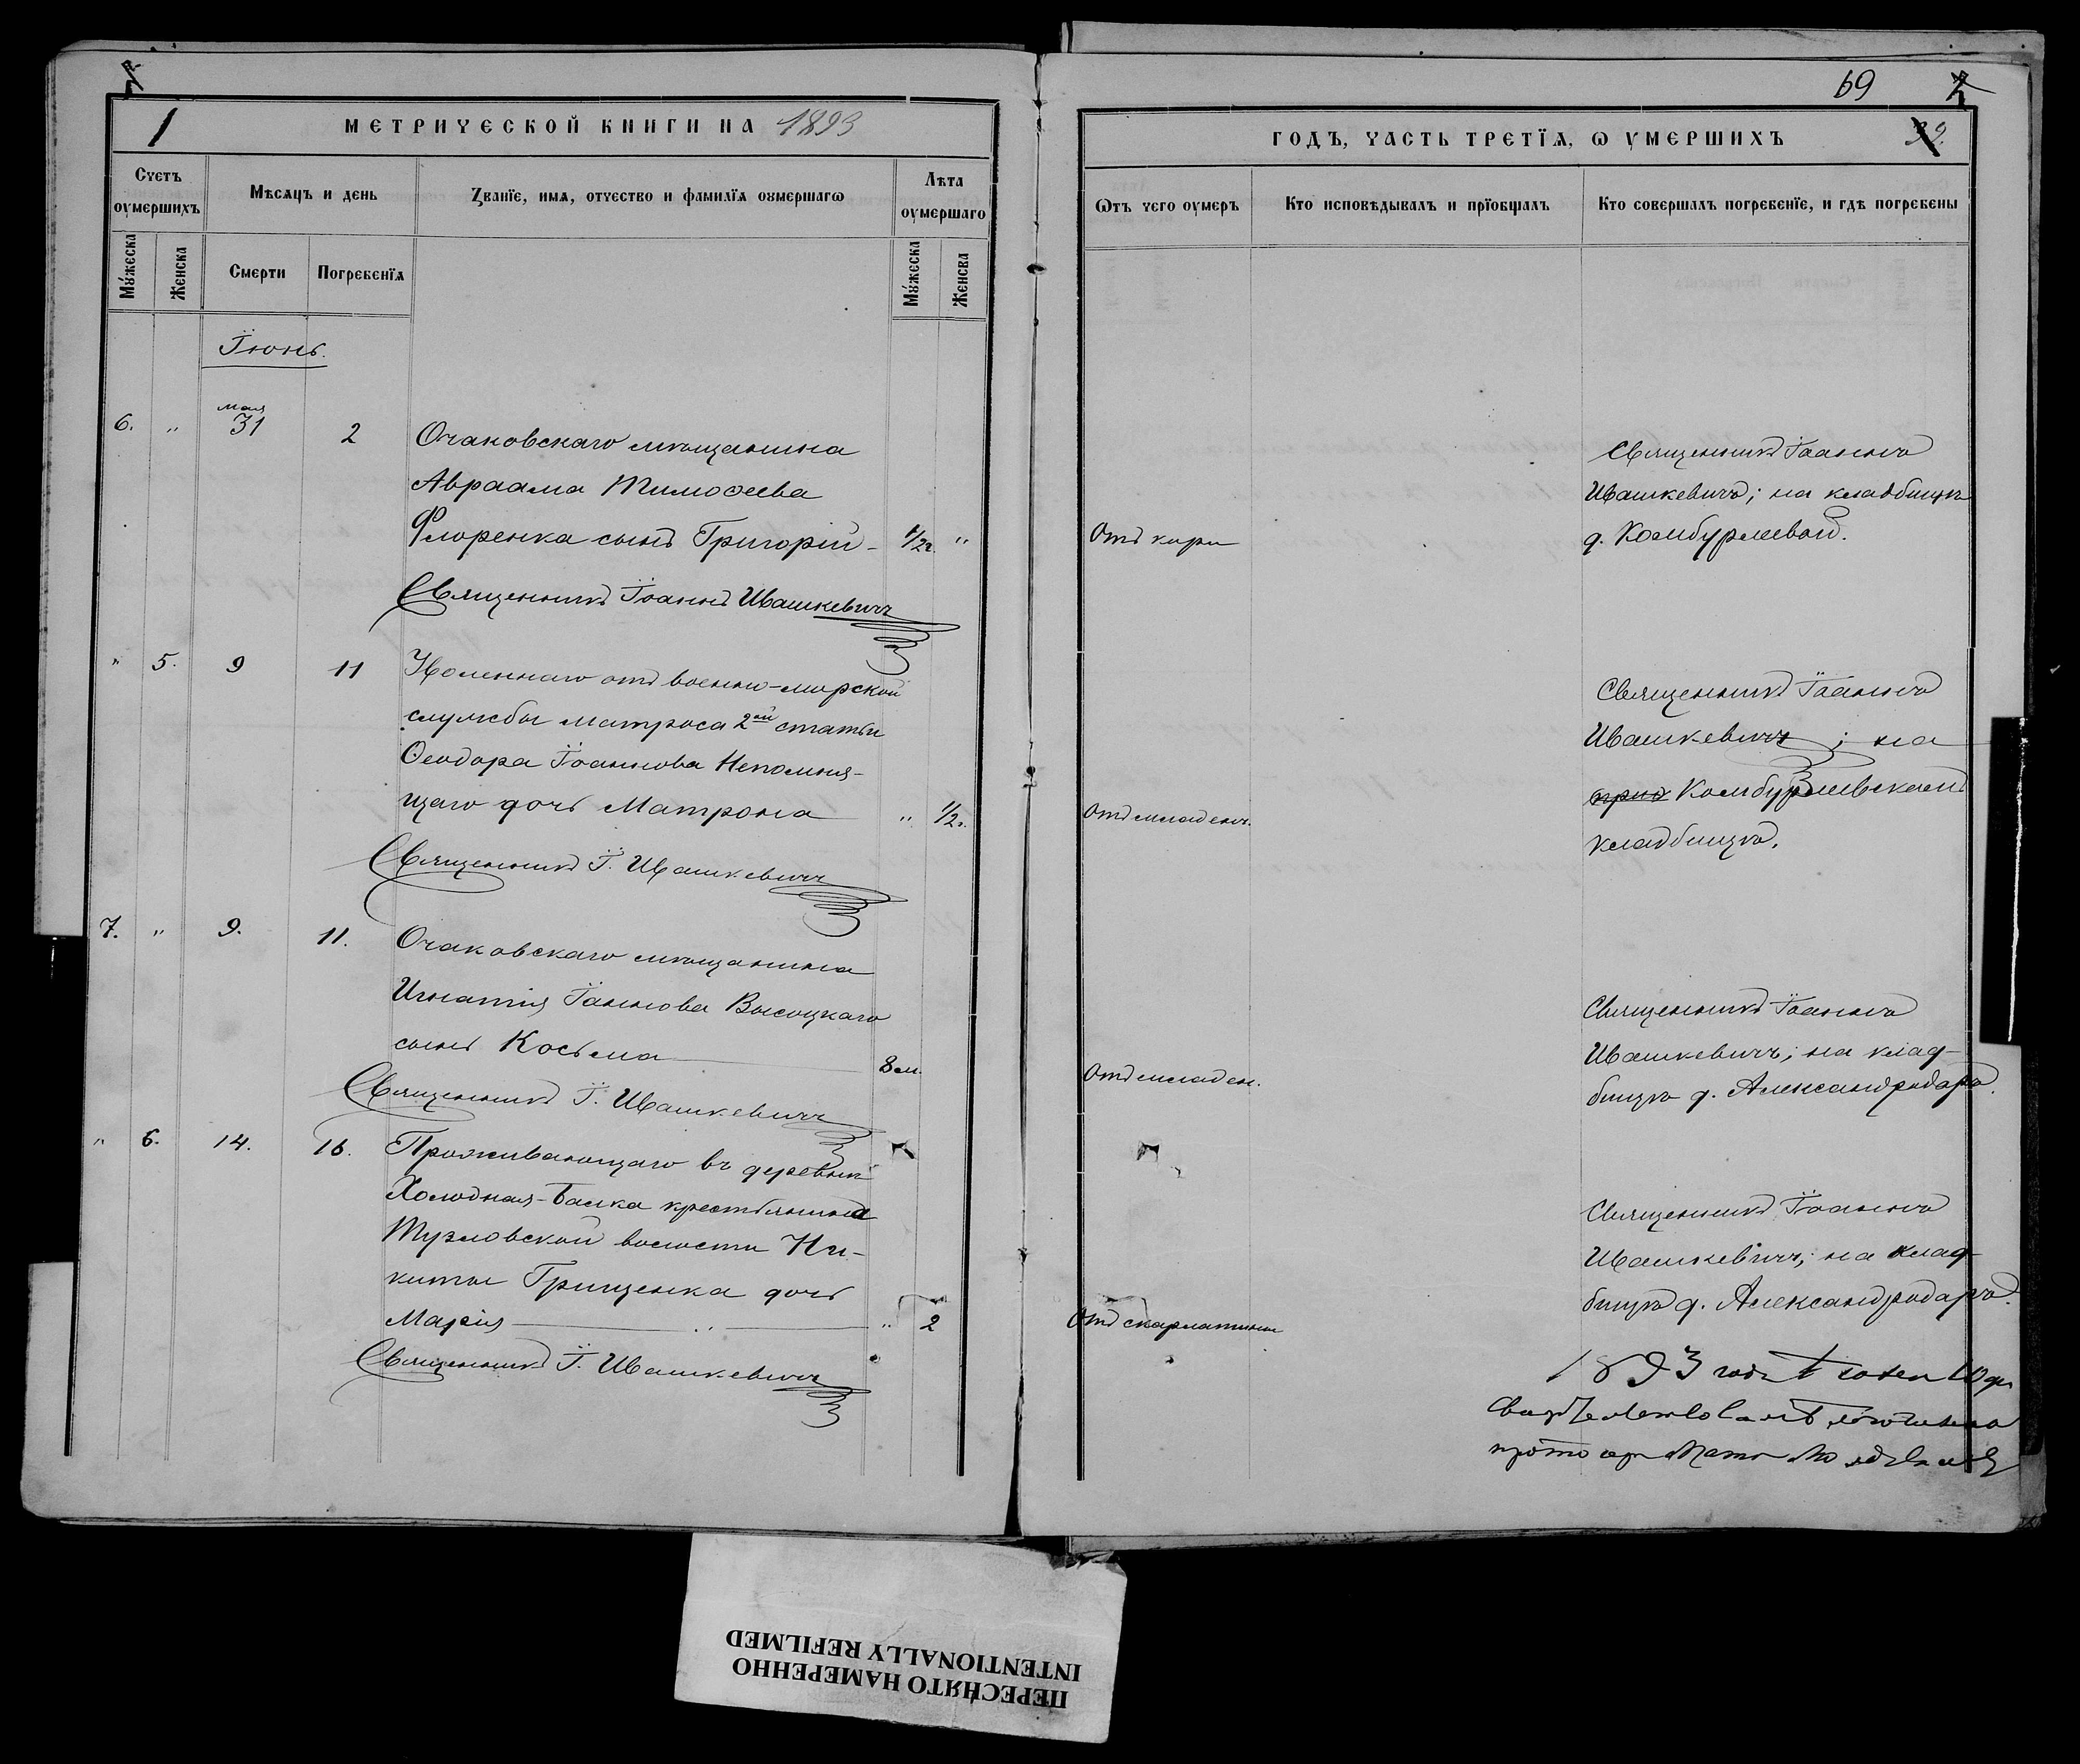 1
МЕТРИЧЕСКОЙ КНИГИ НА 1893
Счетъ оумершихъ
Мѣсяцъ и день
Званїе, имя, отчество и фамилїя оумершагѡ
Лѣта оумершаго
Мужеска
Женска
Смерти
Погребенїя
Мужеска
Женска
Їюнь.
6. " мая 31 2
Очаковскаго мѣщанина
Авраама Тимоѳеева
Флоренка сынъ Григорій - 1/2г. "
Священникъ Їоаннъ Ивашкевичъ
" 5. 9 11
Уволеннаго отъ военно-морской
службы матроса 2ой статьи
Ѳеодора Їоаннова Непомня-
щаго дочь Матрона " 1/2г.
Священникъ Ї. Ивашкевичъ
7. " 9. 11.
Очаковскаго мѣщанина
Игнатія Їаннова Высоцкаго
сынъ Косьма 8 м.
Священникъ Ї. Ивашкевичъ
" 6. 14. 16.
Проживающаго въ деревнѣ
Холодная-Балка крестьянина
Тузловской волости Ни-
киты Грищенка дочь
Марія " " 2
Священникъ Ї. Ивашкевичъ
69
ГОДЪ, ЧАСТЬ ТРЕТЇЯ, Ѡ УМЕРШИХЪ
Ѿтъ чего оумеръ
Кто исповѣдывалъ и прїобщалъ
Кто совершалъ погребенїе, и гдѣ погребены
Отъ кори
Священникъ Їоаннъ
Ивашкевичъ; на кладбищѣ
д. Комбурлеевой.
Отъ младенч.
Священникъ Їоаннъ
Ивашкевичъ; на
Комбурлеевскомъ
кладбищѣ.
Отъ младен.
Священникъ Їоаннъ
Ивашкевичъ; на клад-
бищѣ д. Александродаръ.
Отъ скарлатины
Священникъ Їоаннъ
Ивашкевичъ; на клад-
бищѣ д. Александродаръ.
1893 года 10 дн
свидѣтельствовалъ
ПЕРЕСНЯТО НАМЕРЕННО
INTENTIONALLY REFILMED